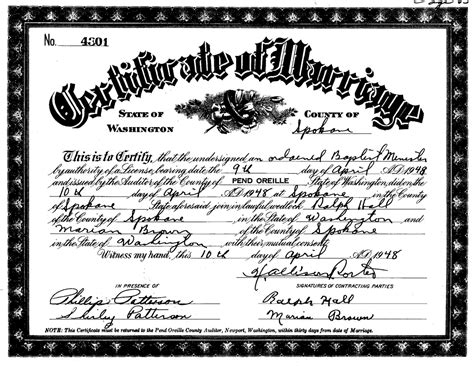 No. 4301
Certificate of Marriage
STATE OF WASHINGTON
COUNTY OF Spokane
This is to Certify, that the undersigned an ordained Baptist Minister
by authority of a License, bearing date the 9th day of April A.D. 1948
and issued by the Auditor of the County of PEND OREILLE State of Washington, did on the
10th day of April A.D. 1948 at Spokane in the County
of Spokane State aforesaid join in lawful wedlock Ralph Hall
of the County of Spokane in the State of Washington and
Marian Brown of the County of Spokane
in the State of Washington with their mutual consent.
Witness my hand, this 10th day of April A.D. 1948
IN PRESENCE OF
Phillip Patterson
Shirley Patterson
SIGNATURES OF CONTRACTING PARTIES
Ralph Hall
Marian Brown
NOTE: This Certificate must be returned to the Pend Oreille County Auditor, Newport, Washington, within thirty days from date of Marriage.